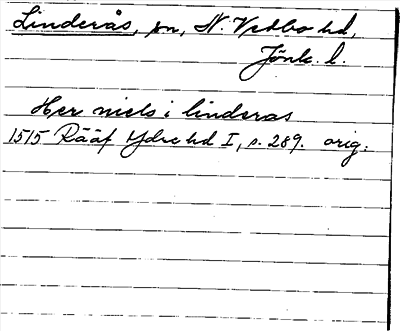 Linderås, sn, N. Vedbo hd,
Jönk. l.
Her niels i linderas
1515 Rääf Ydre hd I, s. 289. orig.